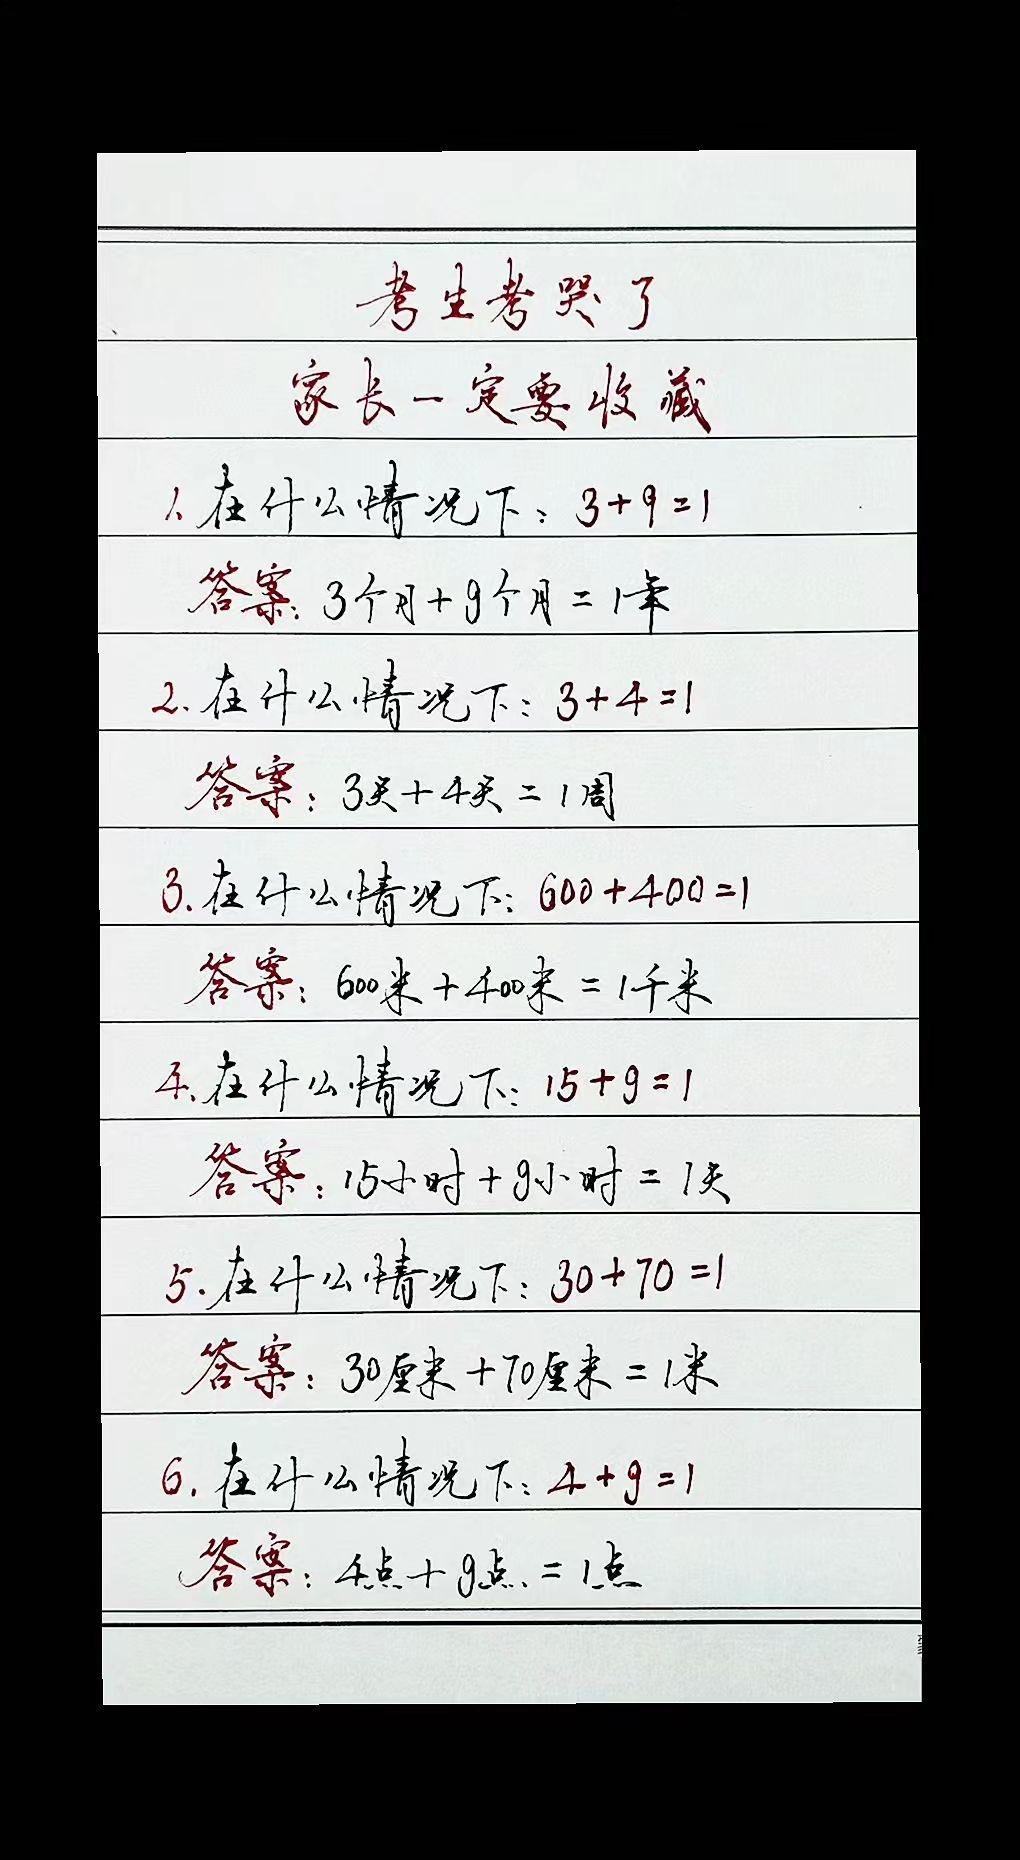 考生考哭了
家长一定要收藏
1.在什么情况下:3+9=1
答案:3个月+9个月=1年
2.在什么情况下:3+4=1
答案:3天+4天=1周
3.在什么情况下:600+400=1
答案:600米+400米=1千米
4.在什么情况下:15+9=1
答案:15小时+9小时=1天
5.在什么情况下:30+70=1
答案:30厘米+70厘米=1米
6.在什么情况下:4+9=1
答案:4点+9点=1点